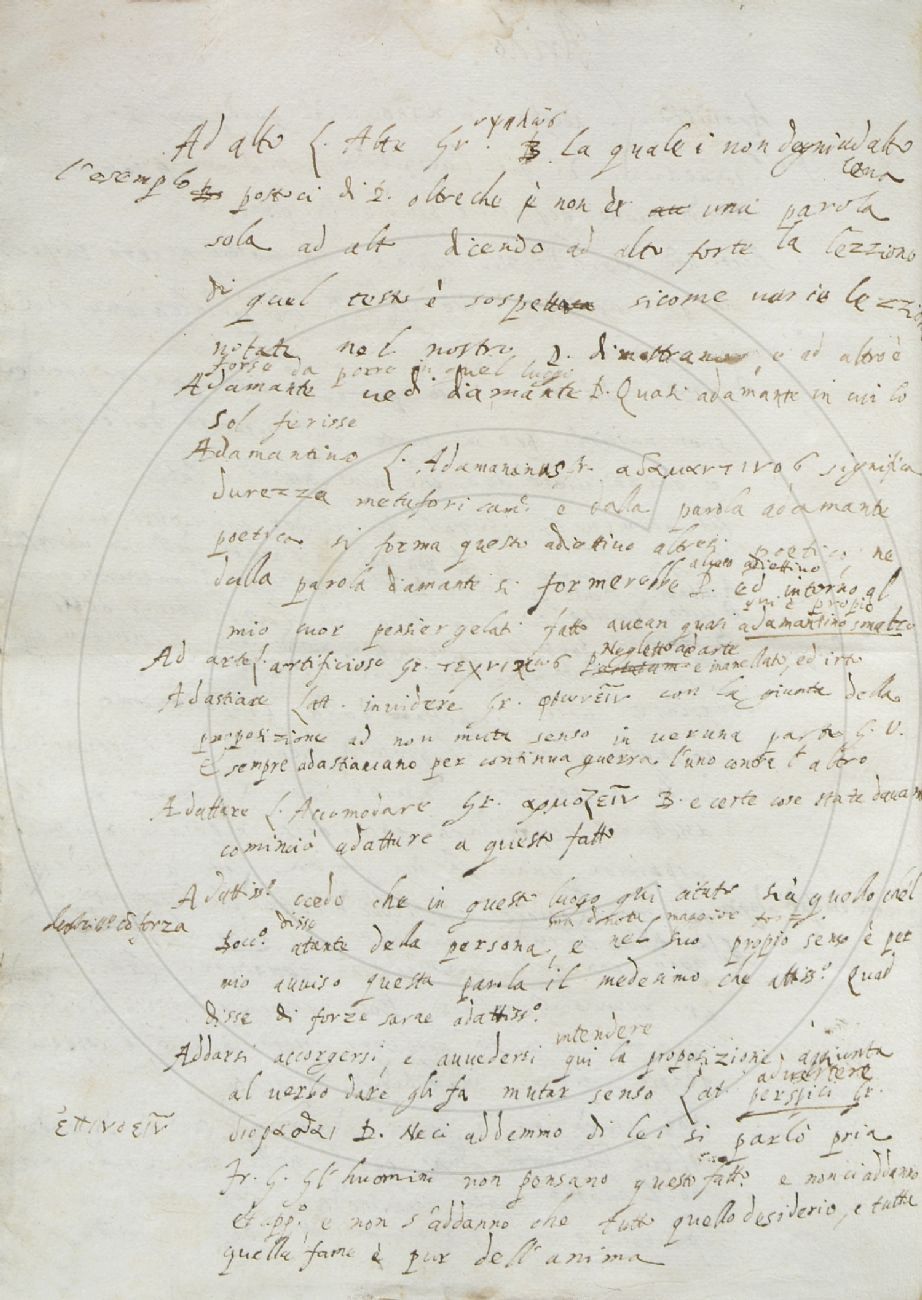 Ad alto L. Alte Gr. ὑψηλῶς B. la quale i non degnià d alto
L'esempio postoci di P. oltre che è non è una parola
sola ad alto dicendo ad alto forte la lezzione
di quel testo è sospetta sicome varie lezzioni
notate nel nostro D. dimostrano, e ad altro è
forse da porre in quel luogo
Adamante vedi diamante P. Quasi adamante in cui lo
sol ferisse
Adamantino L. Adamantinus Gr. αδαμαντινος significa
durezza metaforicam. e dalla parola adamante
poetica si forma questo adiettivo altresì poetico, ne
dalla parola diamante si formerebbe altro adiettivo P. ed intorno al
qui è propio
mio cuor pensier gelati fatto avean quasi adamantino smalto
Ad arte L. artificiose Gr. τεχνικως Neglettto ad arte e inanellato, ed irto
Adastiare Latt. invidere Gr. φθονεῖν con la giunta della
proposizione ad non muta senso in veruna parte G. V.
E sempre adastiavano per continua guerra l'uno contr l'altro
Adattare L. Accomodare Gr. αρμοζεῖν B. e certe cose state davanti
cominciò adattare a questo fatto
Adattiss.o credo che in questo luogo qui citato sia quello che l
ma denota maggior forza
Bocc.o disse atante dela persona, e nel suo propio senso è per
mio avviso questa parola il medesimo che attiss.o Quad
disse di forze sarae adattiss.o
Addarsi accorgersi, e avvedersi intendere qui la proposizione aggiunta
al verbo dare gli fa mutar senso Lat advertere perspici Gr.
ἐπινοεῖν
D. Ne ci addemmo di lei si parlò pria
Fr. G. Gl'huomini non pensano questo fatto e non ci addanno
et app.o e non s'addanno che tutto quello desiderio, e tutta
quella fame è pur dell'anima